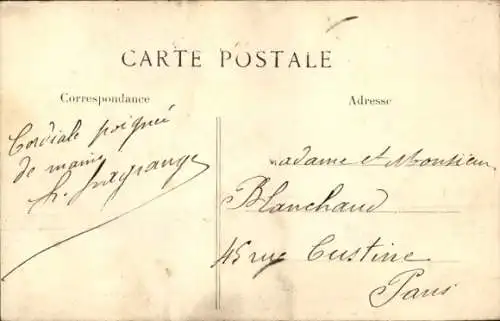 CARTE POSTALE
Correspondance
Adresse
Cordiale poignée
de mains
h. Lagrange
Madame et Monsieur
Blanchaud
45 rue Custine
Paris